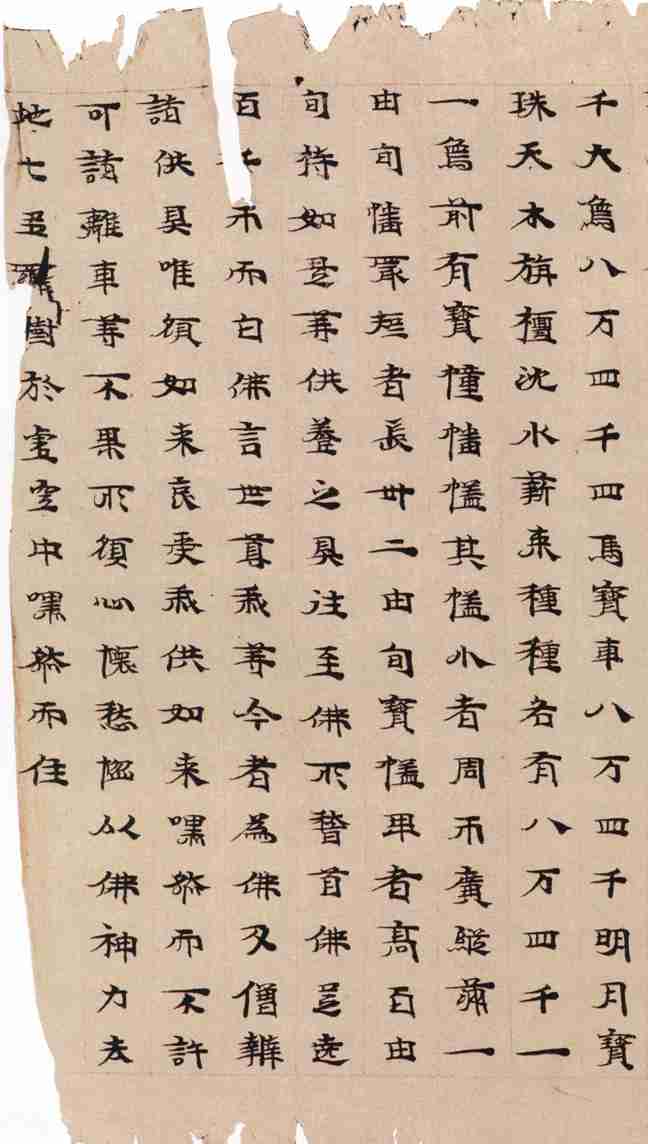 千大象八万四千四馬寶車八万四千明月寶
珠天木旃檀沈水薪束種種各有八万四千一
一象前有寶幢幡蓋其蓋小者周帀廣縱滿一
由旬幡最短者長卅二由旬寶蓋卑者髙百由
旬持如是等供養之具往至佛所稽首佛足遶
百千帀而白佛言世尊我等今者為佛及僧辦
諸供具唯願如來哀受我供如來嘿然而不許
可諸離車等不果所願心懷愁惱以佛神力去
地七多羅樹於虛空中嘿然而住